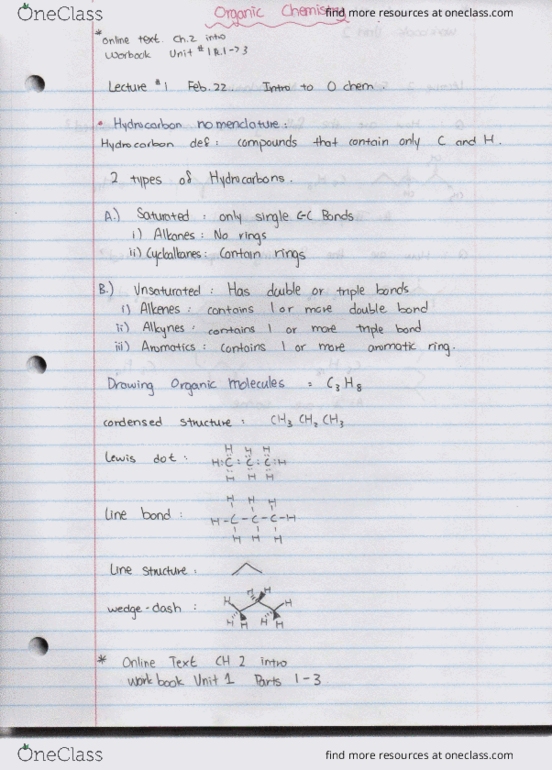 OneClass
find more resources at oneclass.com
Organic Chemistry
*online text Ch.2 intro
Workbook Unit # 1 R.1->3
Lecture #1 Feb.22. Intro to O chem.
* Hydrocarbon nomenclature:
Hydrocarbon def: compounds that contain only C and H.
2 types of Hydrocarbons.
A.) Saturated: only single C-C Bonds
i) Alkanes: No rings
ii) Cycloalkanes: Contain rings
B.) Unsaturated: Has double or triple bonds
i) Alkenes: contains 1 or more double bond
ii) Alkynes: contains 1 or more triple bond
iii) Aromatics: contains 1 or more aromatic ring.
Drawing Organic molecules: C3H8
condensed structure: CH3 CH2 CH3
Lewis dot:
H H H
H:C:C:C:H
H H H
Line bond:
H H H
H-C-C-C-H
H H H
Line structure:
wedge-dash:
H H H H
H H H H
* Online Text CH 2 intro
Workbook Unit 1 Parts 1-3
OneClass
find more resources at oneclass.com